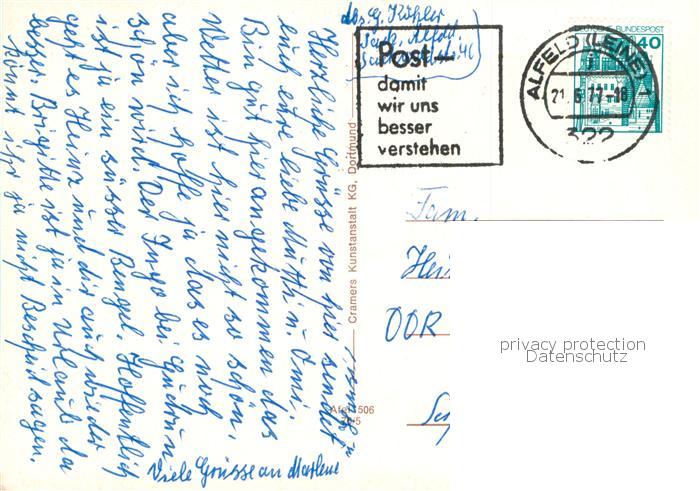 Abs. G. Köhler
Alfeld
Post –
damit
wir uns
besser
verstehen
DEUTSCHE BUNDESPOST
40
ALFELD (LEINE) 1
21.6.77-18
322
Herzliche Grüsse von hier sendet
euch eure liebe Mutti u. Omi.
Bin gut hier angekommen das
Wetter ist hier nicht so schön,
aber ich hoffe ja das es noch
schön wird. Der Ingo bei Gudrun
ist ja ein süsser Bengel. Hoffentlich
geht es Heinz und dir auch wieder
besser. Brigitte ist ja in Urlaub da
könnt ihr ja nicht Bescheid sagen.
Viele Grüsse an Marlene
Cramers Kunstanstalt KG, Dortmund
506
Fam.
Hei
DDR
privacy protection
Datenschutz